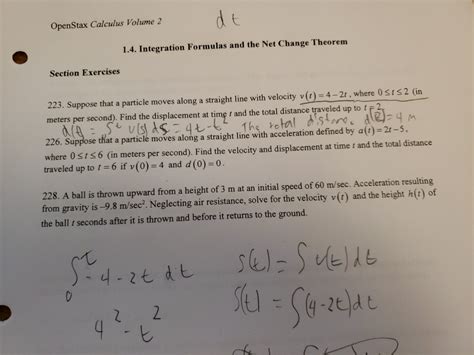 dt
OpenStax Calculus Volume 2
1.4. Integration Formulas and the Net Change Theorem
Section Exercises
223. Suppose that a particle moves along a straight line with velocity v(t) = 4 – 2t, where 0 ≤ t ≤ 2 (in
meters per second). Find the displacement at time t and the total distance traveled up to t = 2.
d(t) = ∫ᵗ v(s) ds = 4t - t² The total distance d(2) = 4 m
226. Suppose that a particle moves along a straight line with acceleration defined by a(t) = 2t – 5,
where 0 ≤ t ≤ 6 (in meters per second). Find the velocity and displacement at time t and the total distance
traveled up to t = 6 if v(0) = 4 and d(0) = 0.
228. A ball is thrown upward from a height of 3 m at an initial speed of 60 m/sec. Acceleration resulting
from gravity is –9.8 m/sec². Neglecting air resistance, solve for the velocity v(t) and the height h(t) of
the ball t seconds after it is thrown and before it returns to the ground.
∫₀ᵗ - 4 - 2t dt
S(t) = ∫ v(t) dt
S(t) = ∫(4-2t) dt
4² - t²